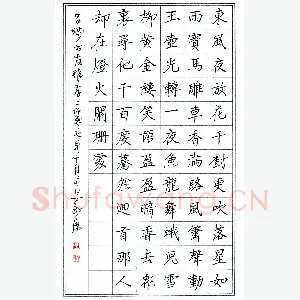 東風夜放花千樹更吹落星如
雨寶馬雕車香滿路鳳簫聲動
玉壺光轉一夜魚龍舞蛾兒雪
柳黃金縷笑語盈盈暗香去衆
裏尋他千百度驀然迴首那人
却在燈火闌珊處
Shufawang.CN